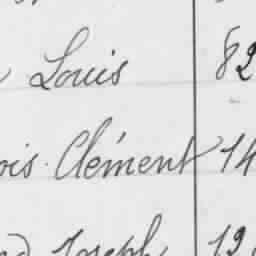 Louis 82
ois Clément 14
Joseph 12